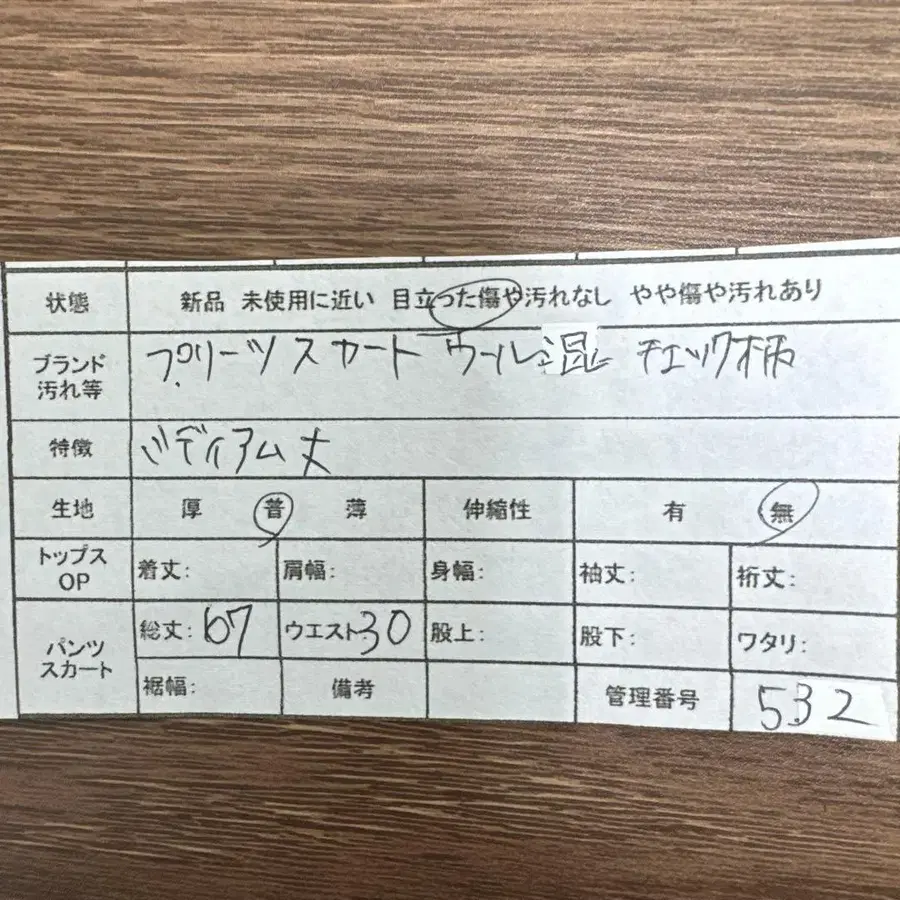 状態 新品 未使用に近い 目立った傷や汚れなし やや傷や汚れあり
ブランド 汚れ等 プリーツスカート ウール混 チェック柄
特徴 ミディアム丈
生地 厚 普 薄 伸縮性 有 無
トップス OP 着丈: 肩幅: 身幅: 袖丈: 裄丈:
パンツ スカート 総丈: 67 ウエスト30 股上: 股下: ワタリ:
裾幅: 備考 管理番号 532